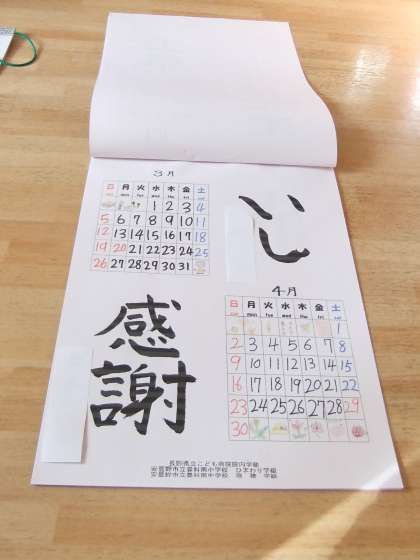 3月
日 月 火 水 木 金 土
sun mon tue wed thu fri sat
1 2 3 4
5 6 7 8 9 10 11
12 13 14 15 16 17 18
19 20 21 22 23 24 25
26 27 28 29 30 31
いし
4月
日 月 火 水 木 金 土
sun mon tue wed thu fri sat
1
2 3 4 5 6 7 8
9 10 11 12 13 14 15
16 17 18 19 20 21 22
23 24 25 26 27 28 29
30
感
謝
長野県立こども病院院内学級
安曇野市立豊科南小学校 ひまわり学級
安曇野市立豊科南中学校 学級